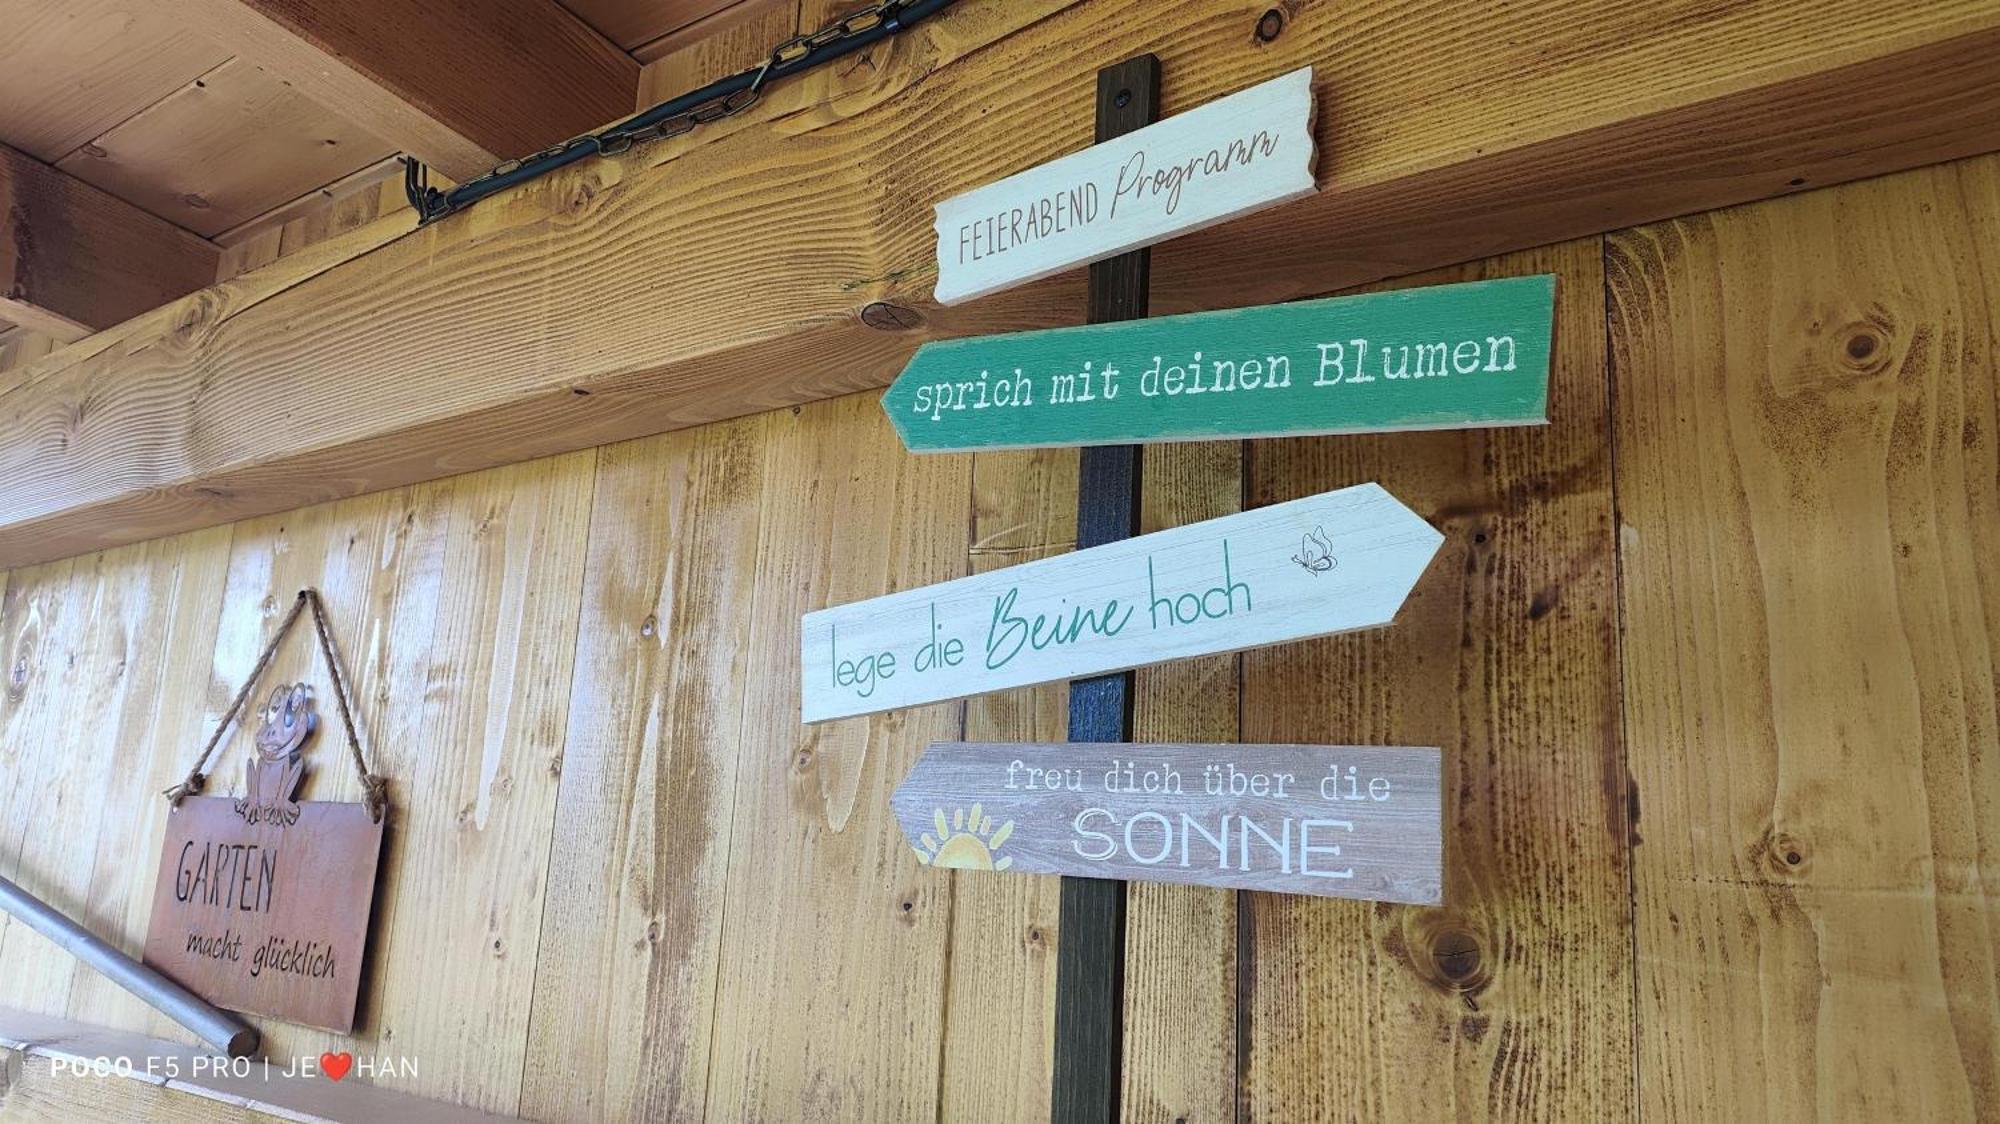 FEIERABEND Programm
sprich mit deinen Blumen
lege die Beine hoch
freu dich über die
SONNE
GARTEN
macht glücklich
POCO F5 PRO | JE❤️HAN